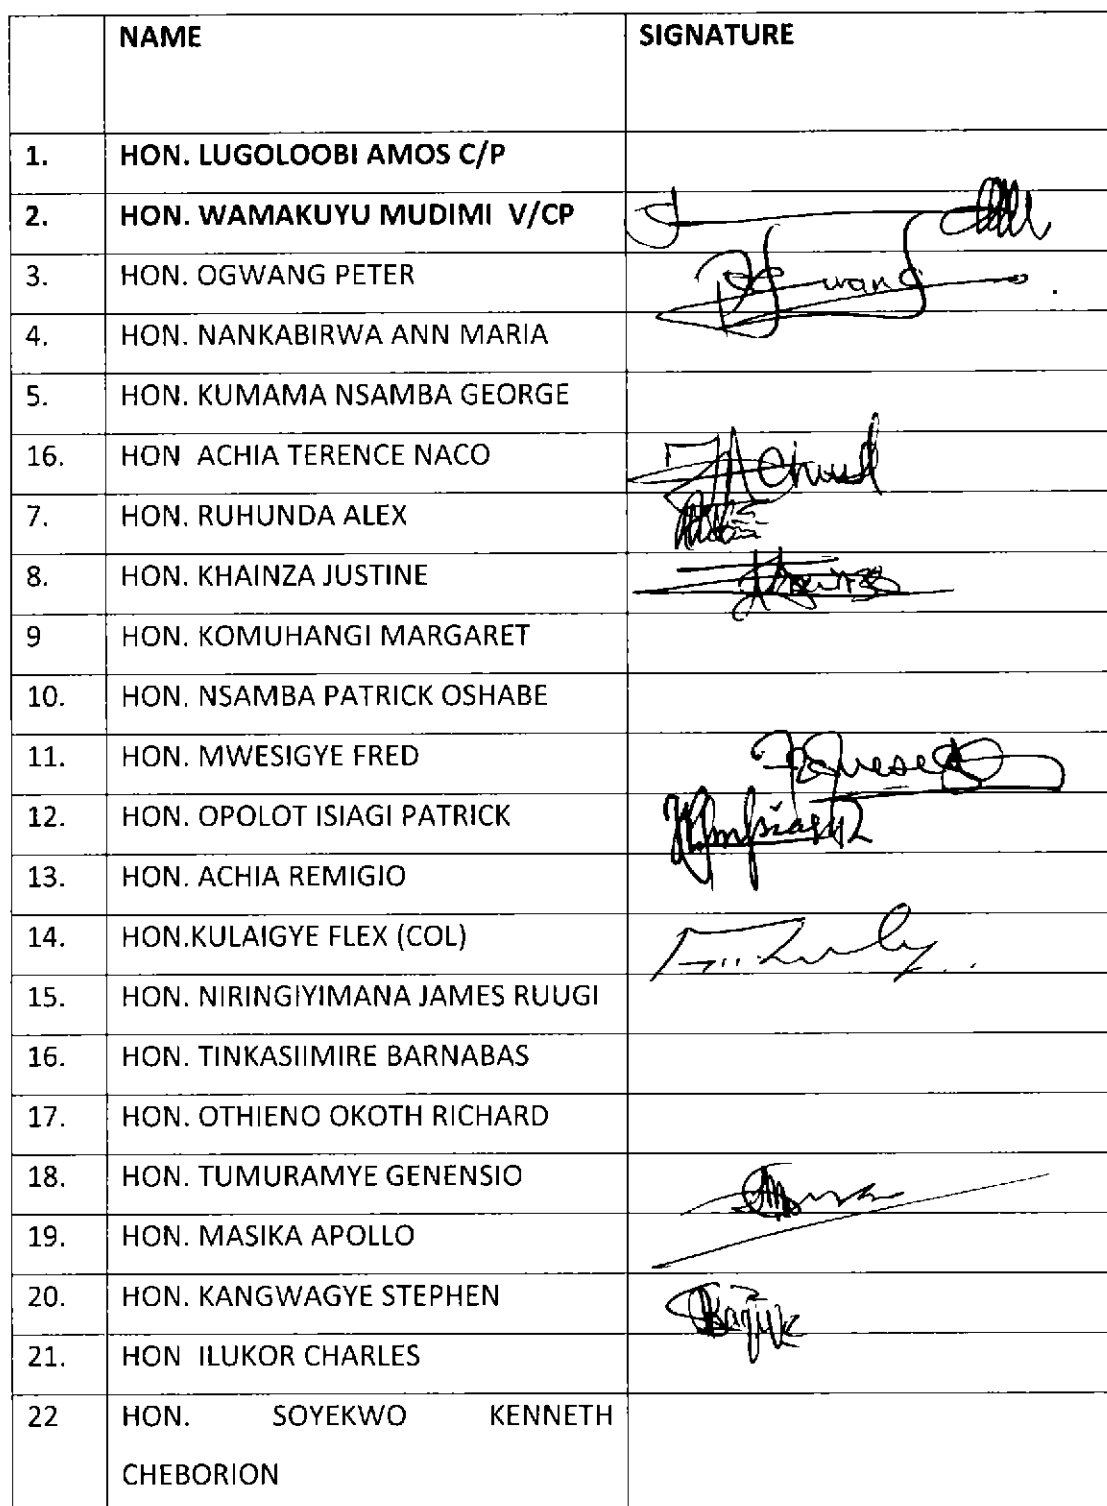 NAME SIGNATURE
1. HON. LUGOLOOBI AMOS C/P
2. HON. WAMAKUYU MUDIMI V/CP
3. HON. OGWANG PETER
4. HON. NANKABIRWA ANN MARIA
5. HON. KUMAMA NSAMBA GEORGE
16. HON ACHIA TERENCE NACO
7. HON. RUHUNDA ALEX
8. HON. KHAINZA JUSTINE
9 HON. KOMUHANGI MARGARET
10. HON. NSAMBA PATRICK OSHABE
11. HON. MWESIGYE FRED
12. HON. OPOLOT ISIAGI PATRICK
13. HON. ACHIA REMIGIO
14. HON.KULAIGYE FLEX (COL)
15. HON. NIRINGIYIMANA JAMES RUUGI
16. HON. TINKASIIMIRE BARNABAS
17. HON. OTHIENO OKOTH RICHARD
18. HON. TUMURAMYE GENENSIO
19. HON. MASIKA APOLLO
20. HON. KANGWAGYE STEPHEN
21. HON ILUKOR CHARLES
22 HON. SOYEKWO KENNETH
CHEBORION